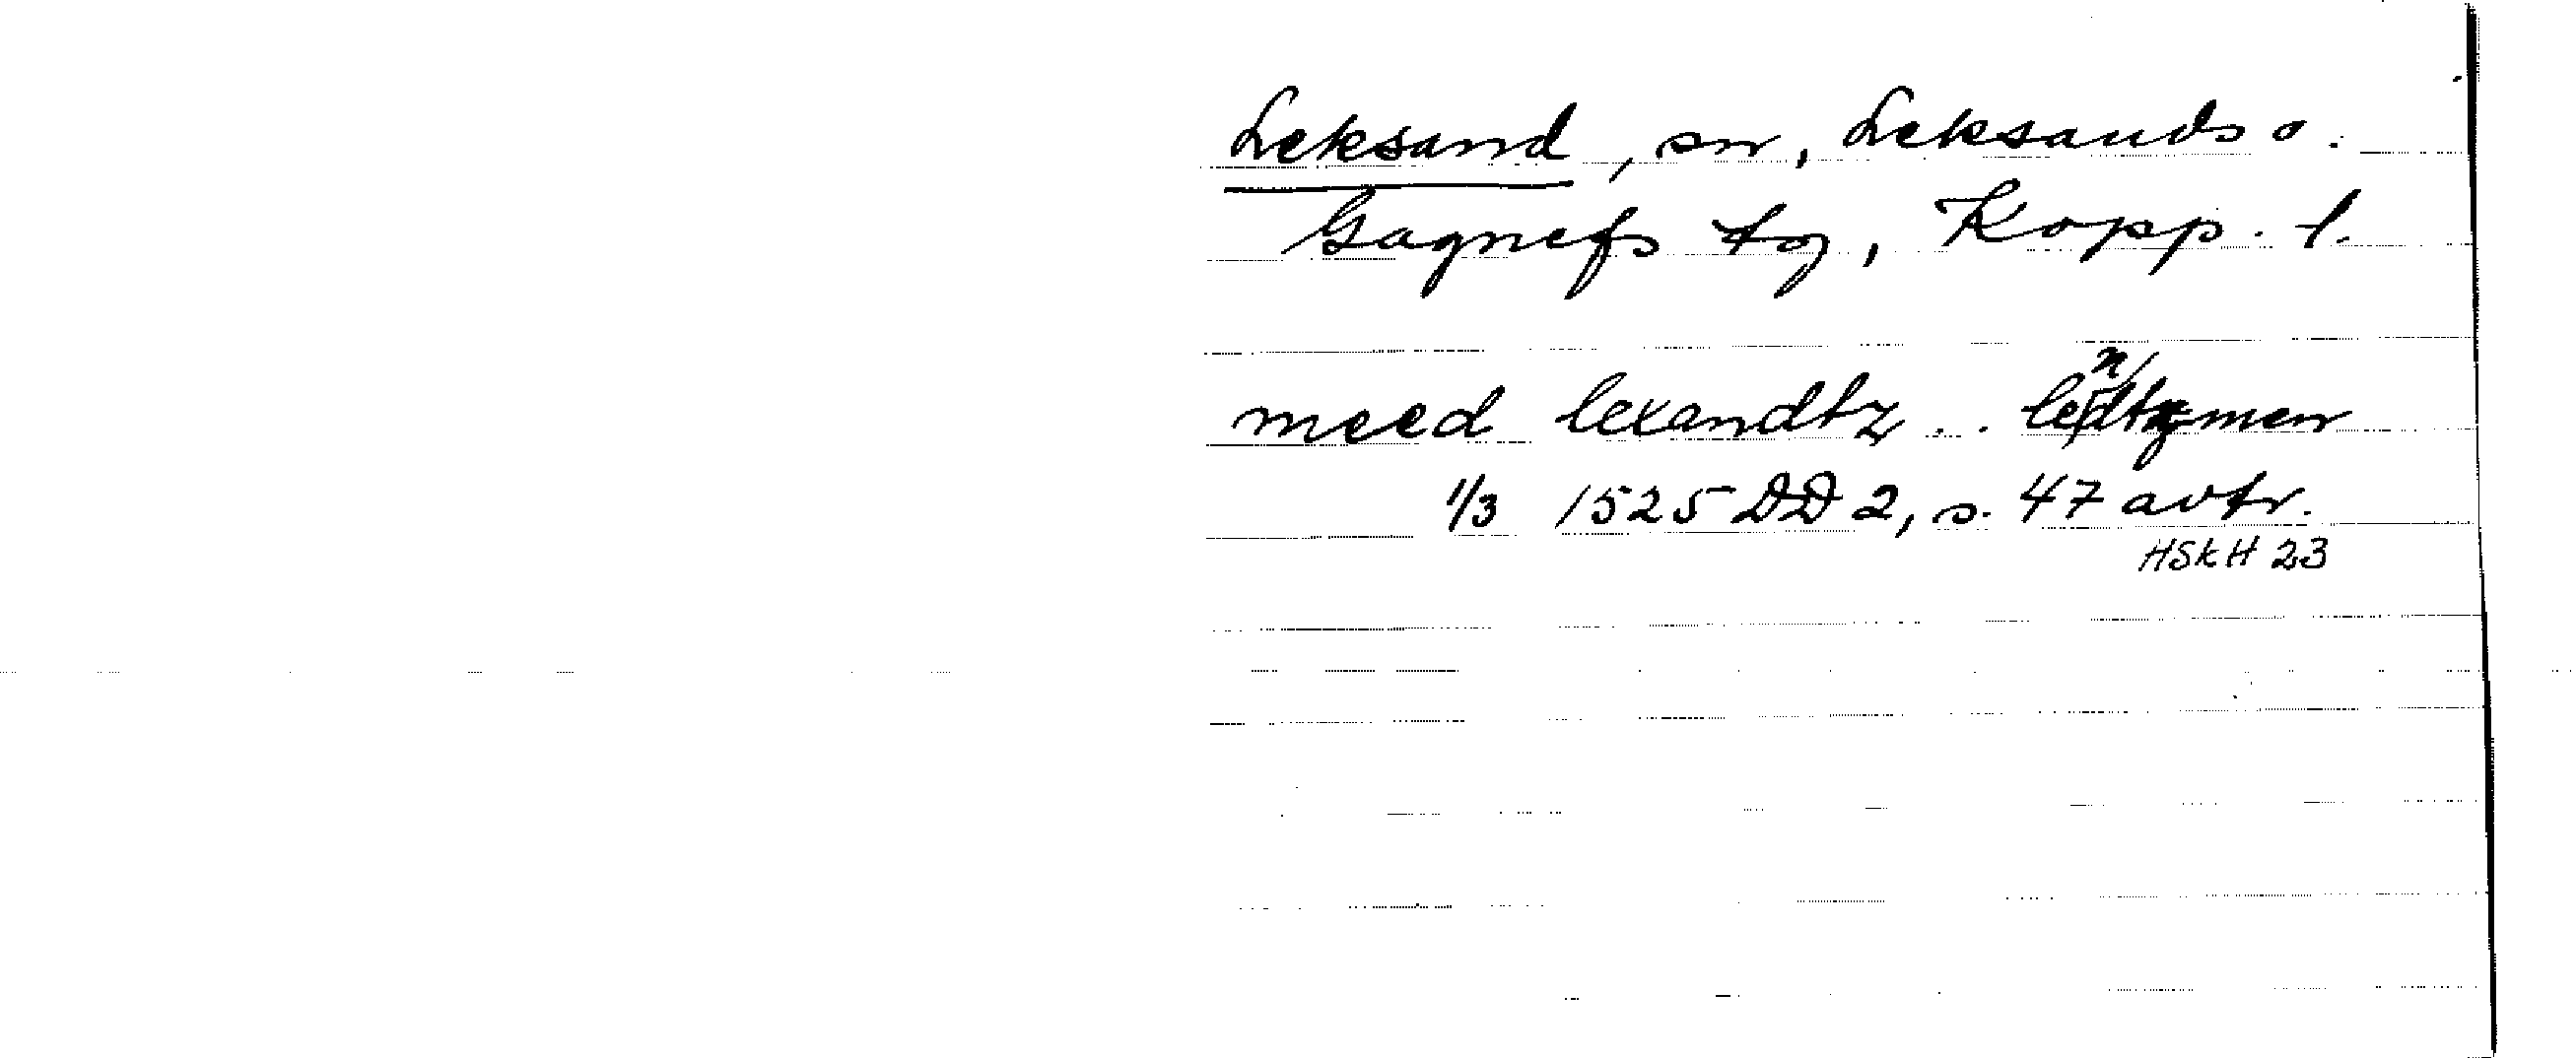 Leksand, sn, Leksands o.
Gagnefs tg, Kopp. l.
meed lexandtz .. lendtzmen
1/3 1525 DD 2, s. 47 avtr.
HSkH 23